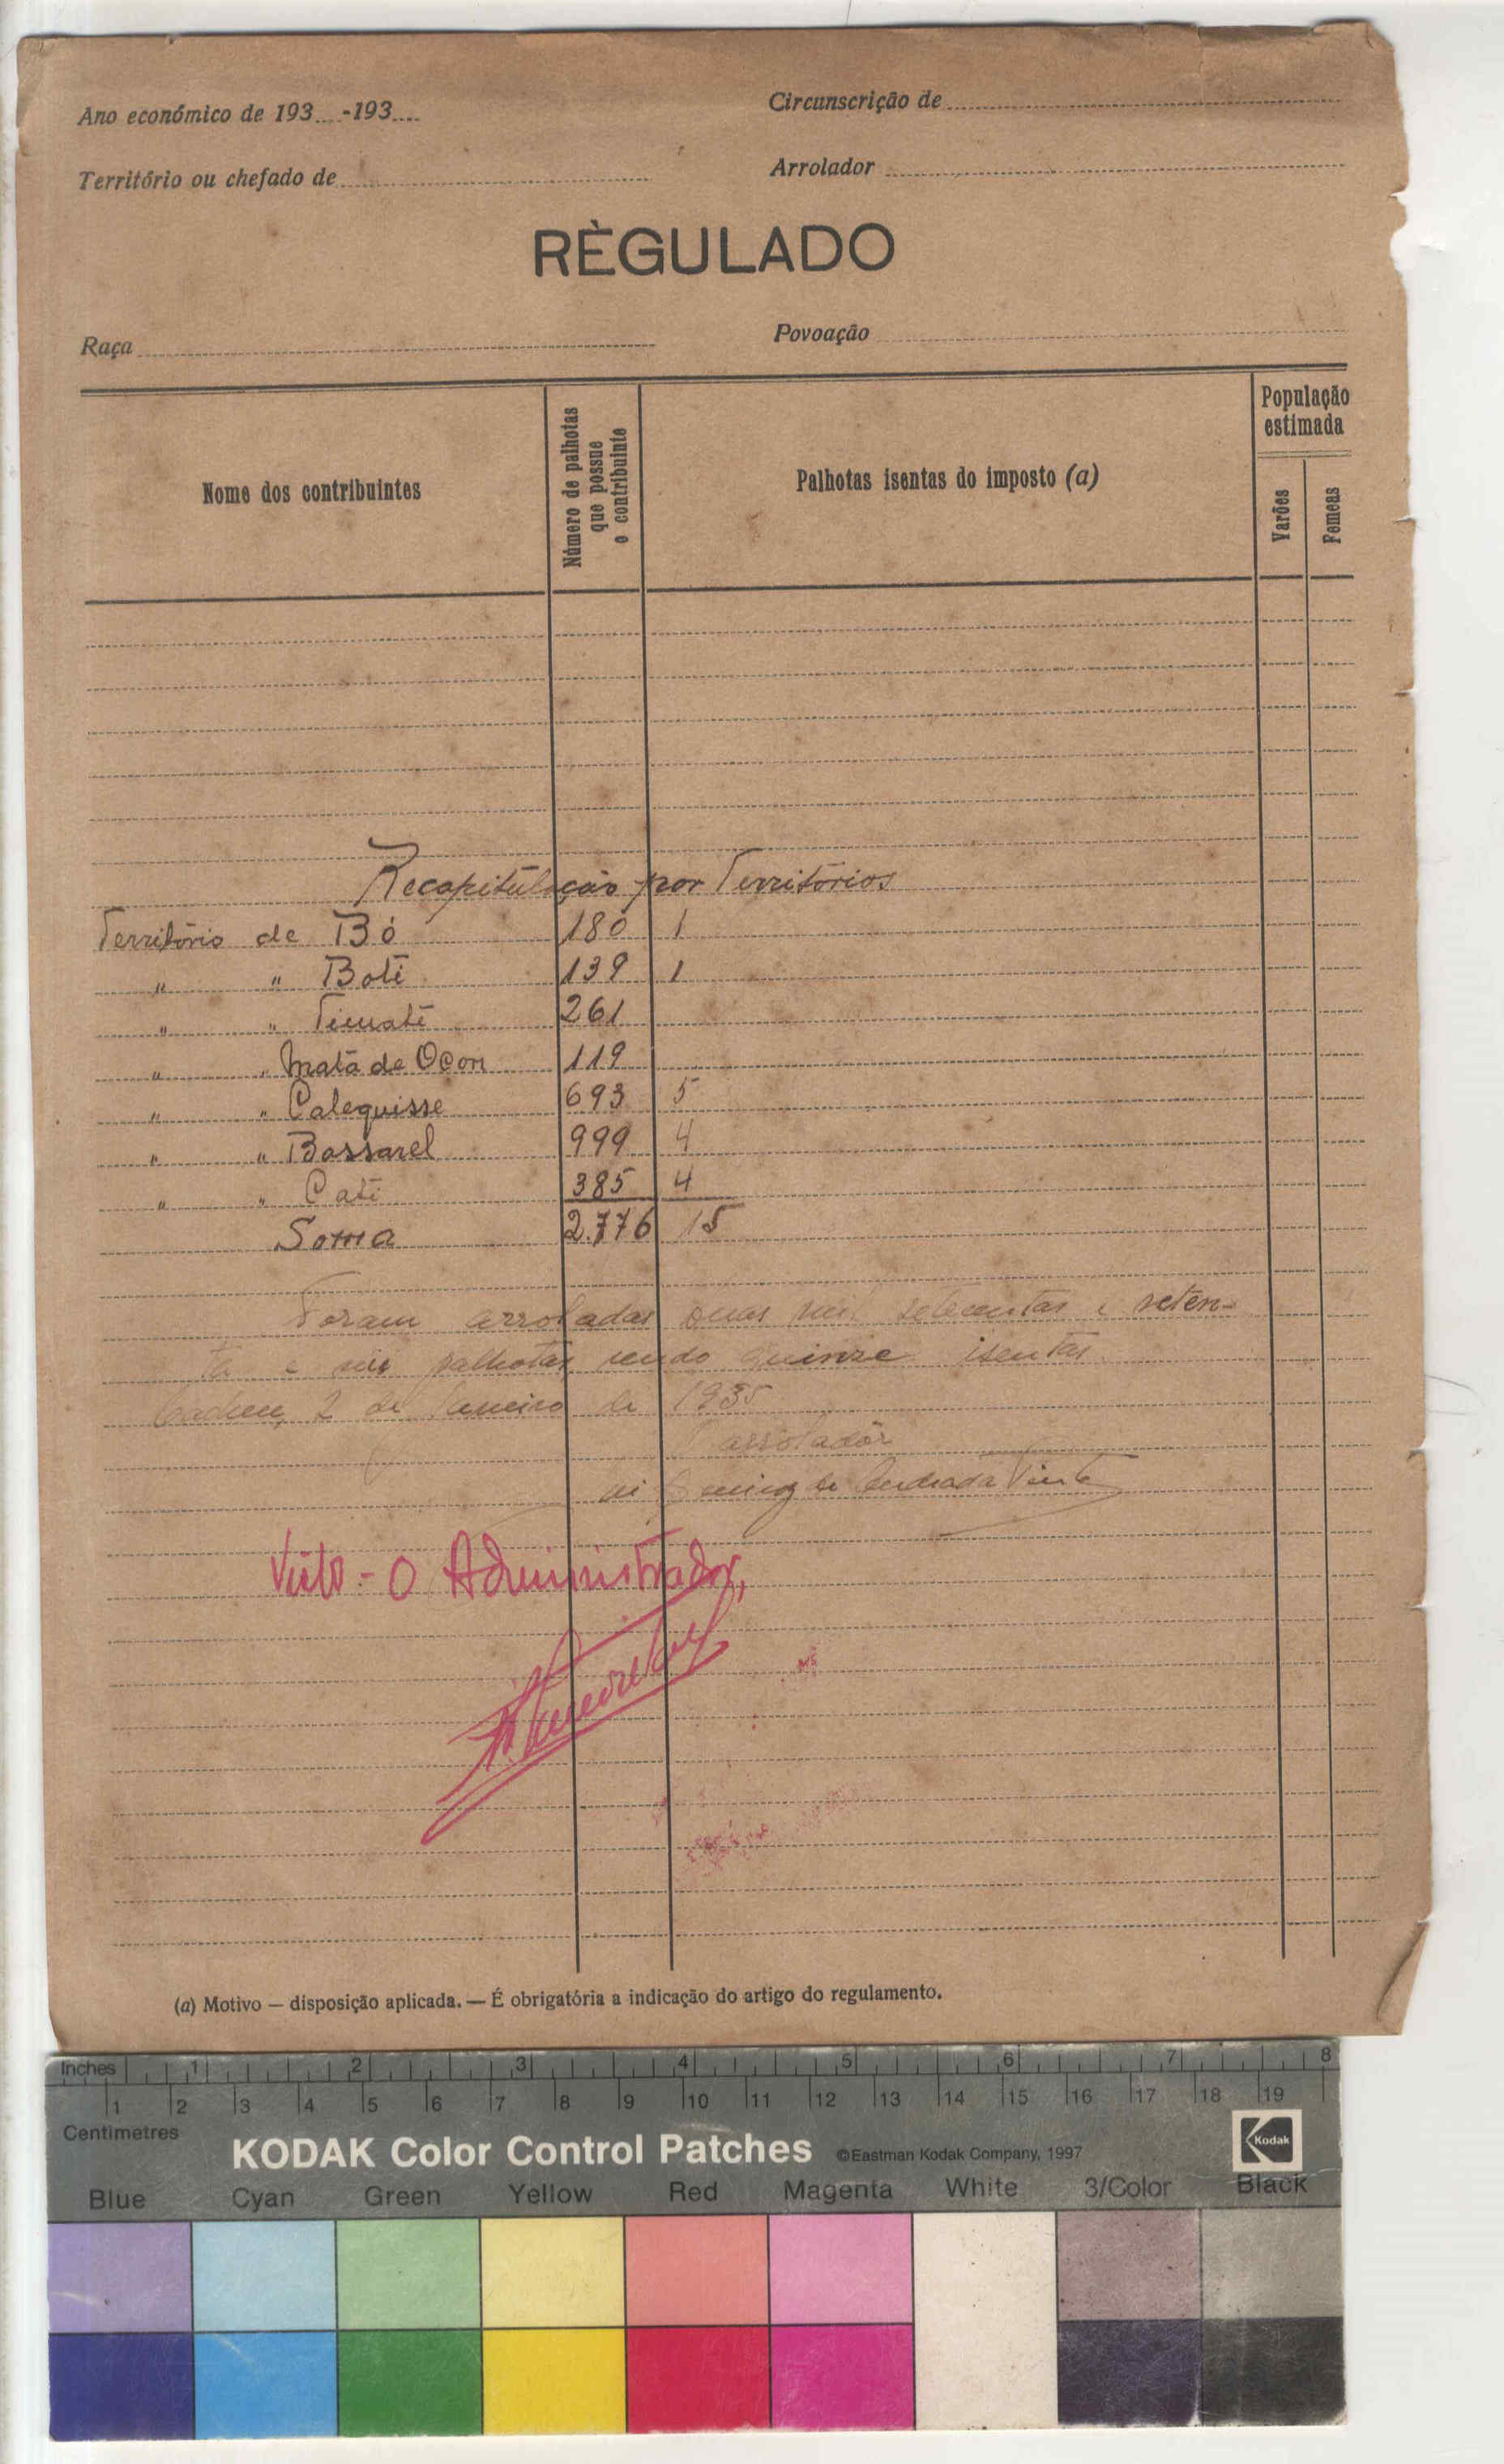 Ano económico de 193....-193....
Circunscrição de
Território ou chefado de
Arrolador
RÈGULADO
Raça
Povoação
Nome dos contribuintes
Número de palhotas que possue o contribuinte
Palhotas isentas do imposto (a)
População estimada
Varões
Femeas
Recapitulação por Territórios
Território de Bó 180 1
" " Boti 139 1
" " 261
" " Matá de Ocon 119
" " Calequisse 693 5
" " Bassarel 999 4
" " Cati 385 4
Soma 2.776 15
Foram arroladas duas mil setecentas e seten-
ta e seis palhotas sendo quinze isentas
Cacheu, 2 de Janeiro de 1935
O arrolador
de Andrade
Visto - O Administrador,
(a) Motivo — disposição aplicada. — É obrigatória a indicação do artigo do regulamento.
Inches 1 2 3 4 5 6 7 8
1 2 3 4 5 6 7 8 9 10 11 12 13 14 15 16 17 18 19
Centimetres
KODAK Color Control Patches ©Eastman Kodak Company, 1997 Kodak
Blue Cyan Green Yellow Red Magenta White 3/Color Black